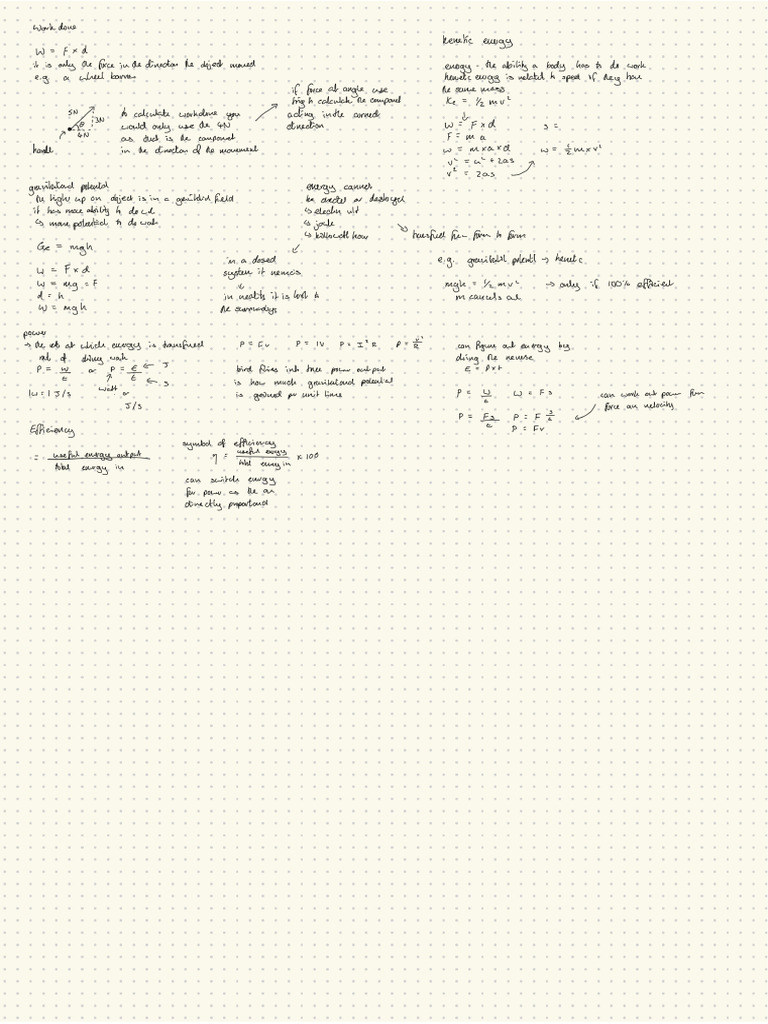 work done
W = F × d
it is only the force in the direction the object moved
e.g. a wheel barrow
5N
3N
θ
4N
handle
to calculate workdone you
would only use the 4N
as that is the component
in the direction of the movement
if force at angle use
trig to calculate the component
acting in the correct
direction
kenetic energy
energy - the ability a body has to do work
kenetic energy is related to speed if they have
the same mass
Ke = 1/2 mv²
W = F × d
s =
F = m a
w = m × a × d
w = 1/2 m × v²
v² = u² + 2as
v² = 2as
gravitational potential
the higher up an object is in a gravitational field
it has more ability to do work
↳ more potential to do work
Ge = mgh
W = F × d
W = mg = F
d = h
W = mgh
energy cannot
be created or destroyed
↳ electron volt
↳ joule
↳ killowatt hour
in a closed
system it remains
in reality it is lost to
the surroundings
transfered from form to form
e.g. gravitational potential → kenetic
mgh = 1/2 mv² → only if 100% efficient
m cancels out
power
→ the rate at which energy is transfered
rate of doing work
P = W/t or P = E/t ← J
← s
watt
or
J/s
1W = 1 J/s
P = Fv P = IV P = I²R P = V²/R
bird flies into tree power output
is how much gravitational potential
is gained per unit time
can figure out energy by
doing the reverse
E = P×t
P = W/t W = Fs
P = Fs/t P = F s/t
P = Fv
can work out power from
force an velocity
Efficiency
= useful energy output / total energy in
symbol of efficiency
η = useful energy / total energy in × 100
can switch energy
for power as the are
directly proportional